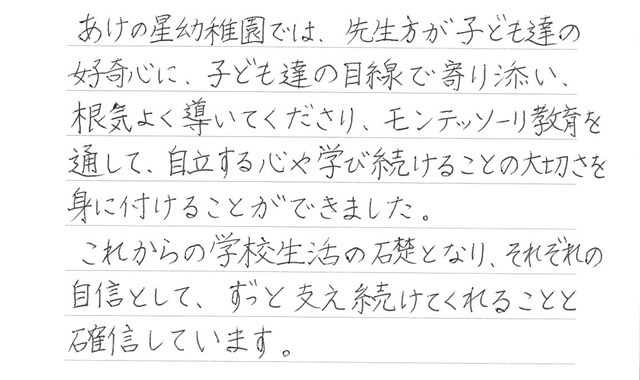 あけの星幼稚園では、先生方が子ども達の
好奇心に、子ども達の目線で寄り添い、
根気よく導いてくださり、モンテッソーリ教育を
通して、自立する心や学び続けることの大切さを
身に付けることができました。
これからの学校生活の礎となり、それぞれの
自信として、ずっと支え続けてくれることと
確信しています。